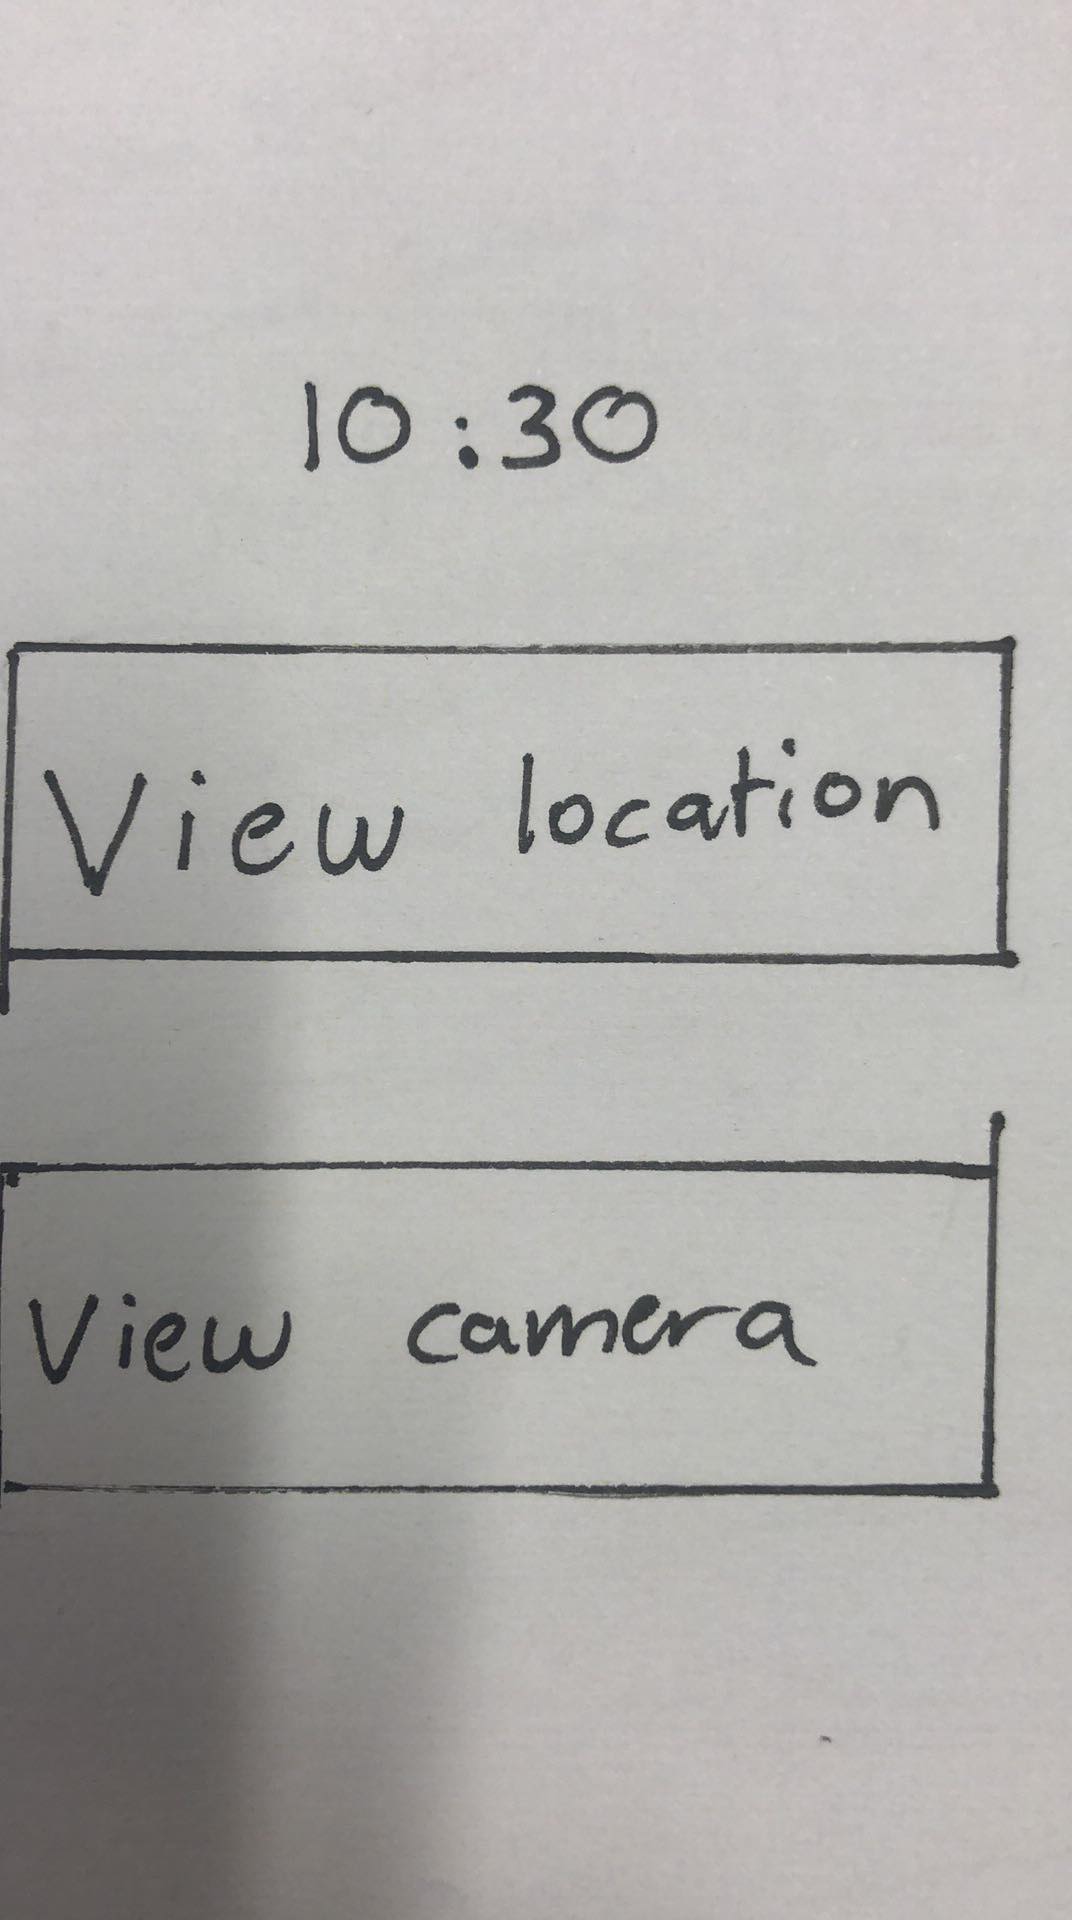 10:30
View location
View camera